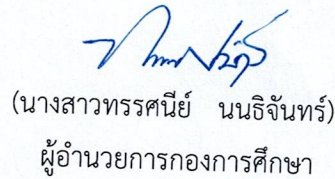 (นางสาวทรรศนีย์ นนธิจันทร์)
ผู้อำนวยการกองการศึกษา